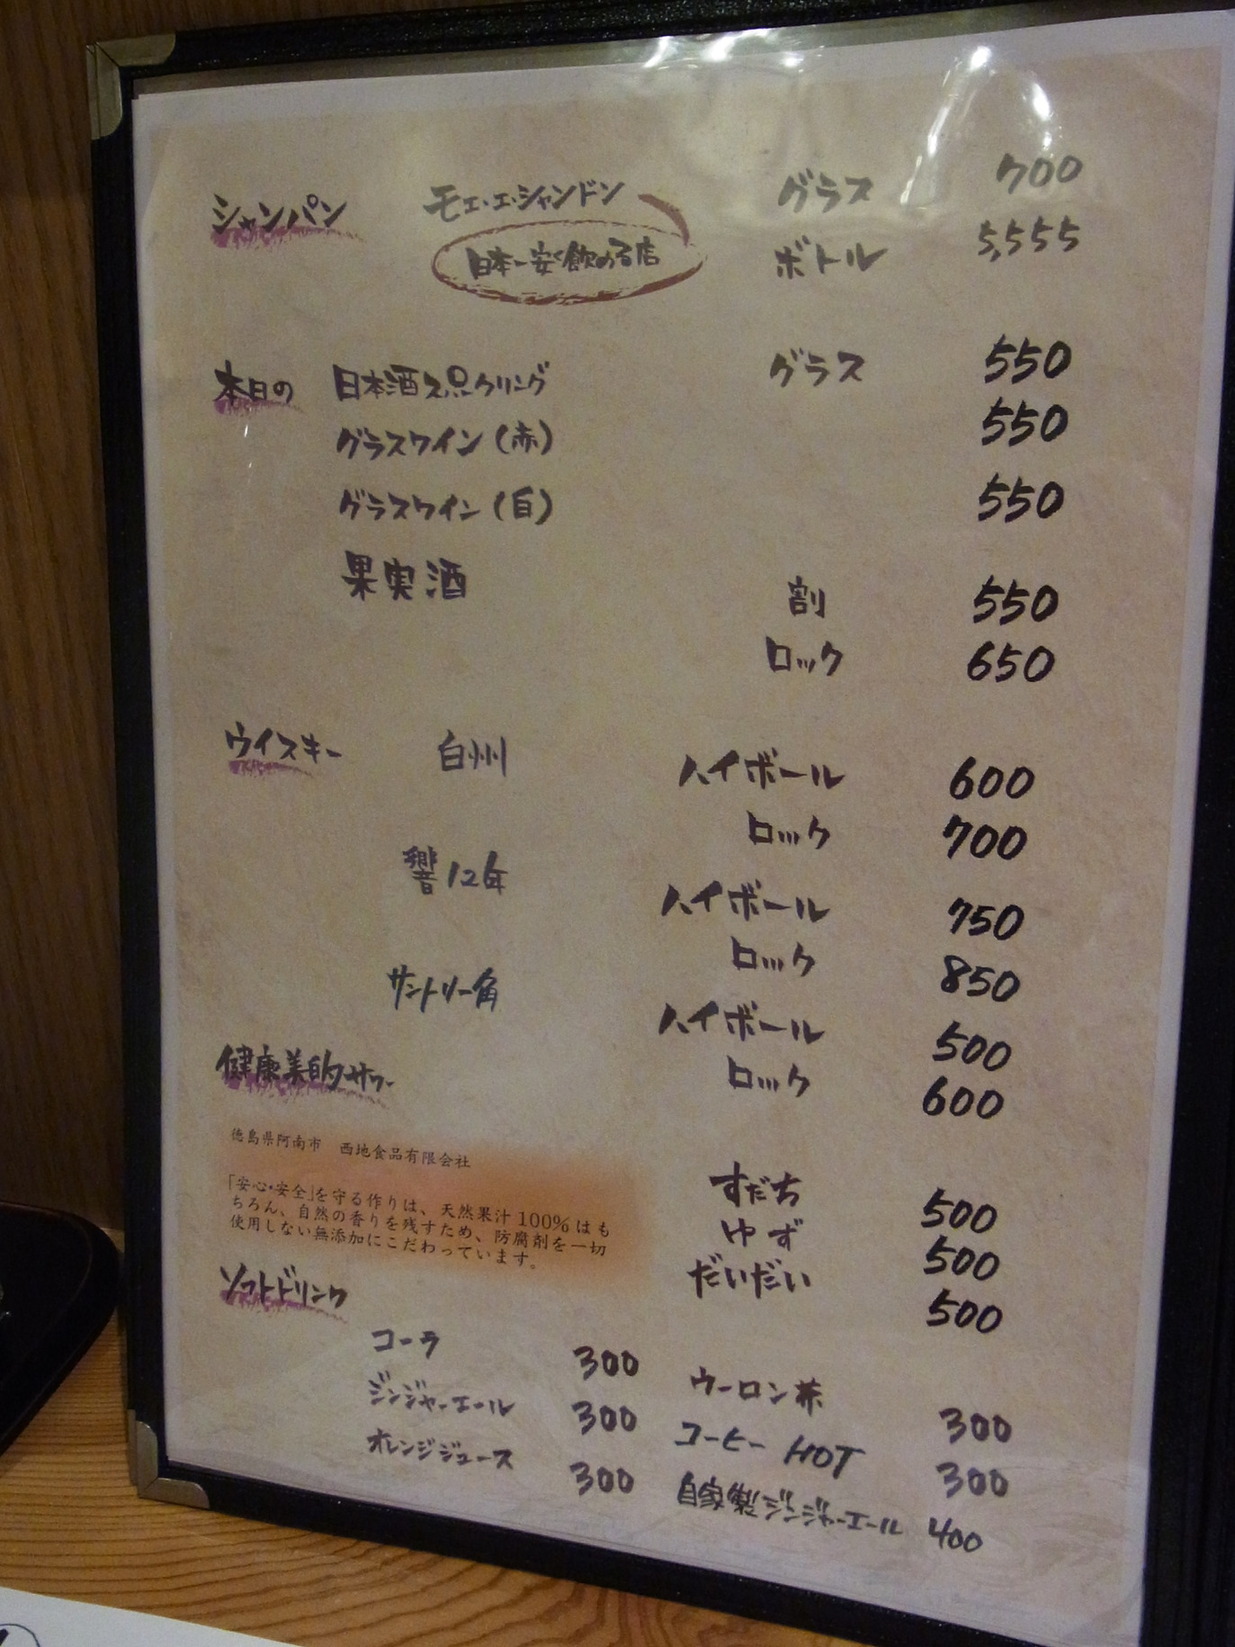 シャンパン モエ・エ・シャンドン グラス 700
日本一安く飲める店 ボトル 5,555
本日の 日本酒スパークリング グラス 550
グラスワイン(赤) 550
グラスワイン(白) 550
果実酒 割 550
ロック 650
ウイスキー 白州 ハイボール 600
ロック 700
響12年 ハイボール 750
ロック 850
サントリー角 ハイボール 500
ロック 600
健康美的サワー
徳島県阿南市 西地食品有限会社
「安心・安全」を守る作りは、天然果汁100%はも
ちろん、自然の香りを残すため、防腐剤を一切
使用しない無添加にこだわっています。
すだち 500
ゆず 500
だいだい 500
ソフトドリンク
コーラ 300 ウーロン茶 300
ジンジャーエール 300 コーヒー HOT 300
オレンジジュース 300 自家製ジンジャーエール 400